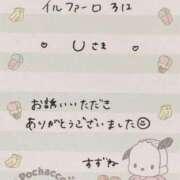 イルファーロ 312
♡ Uさま ♡
お誘いいただき
ありがとうございました☺
すずね
Pochacco